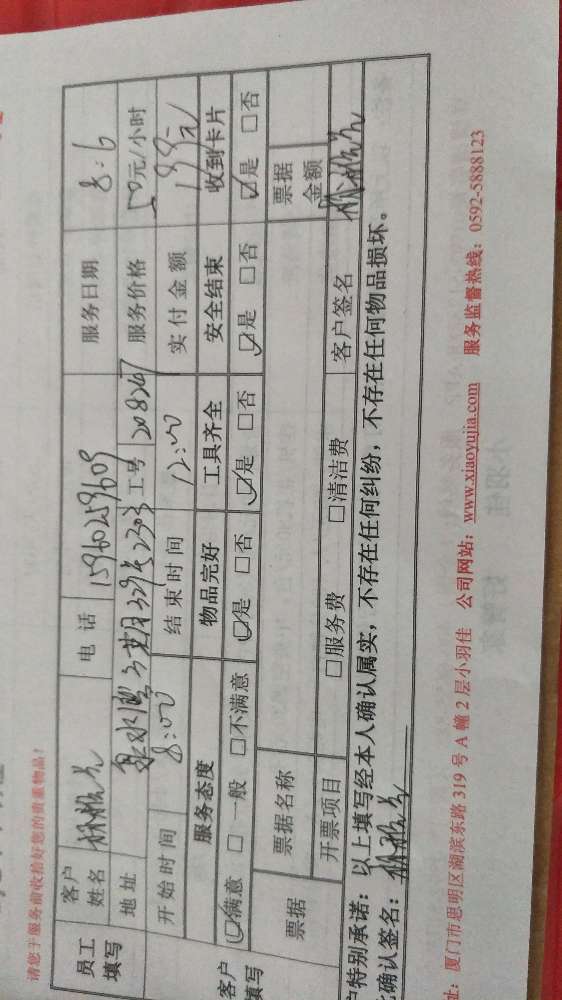 请您于服务前收拾好您的贵重物品！
员工填写
客户姓名
电 话 15960259609
服务日期 8.6
地 址
2303
工号 208247
服务价格 50元/小时
开始时间 8:00
结束时间 12:00
实付金额
服务态度
物品完好
工具齐全
安全结束
收到卡片
客户填写
☑满意 □一般 □不满意
☑是 □否
☑是 □否
☑是 □否
☑是 □否
票据
票据名称
票据金额
开票项目
□服务费 □清洁费
客户签名
户特别承诺：以上填写经本人确认属实，不存在任何纠纷，不存在任何物品损坏。
确认签名：
址：厦门市思明区湖滨东路 319 号 A 幢 2 层小羽佳 公司网站：www.xiaoyujia.com 服务监督热线：0592-5888123